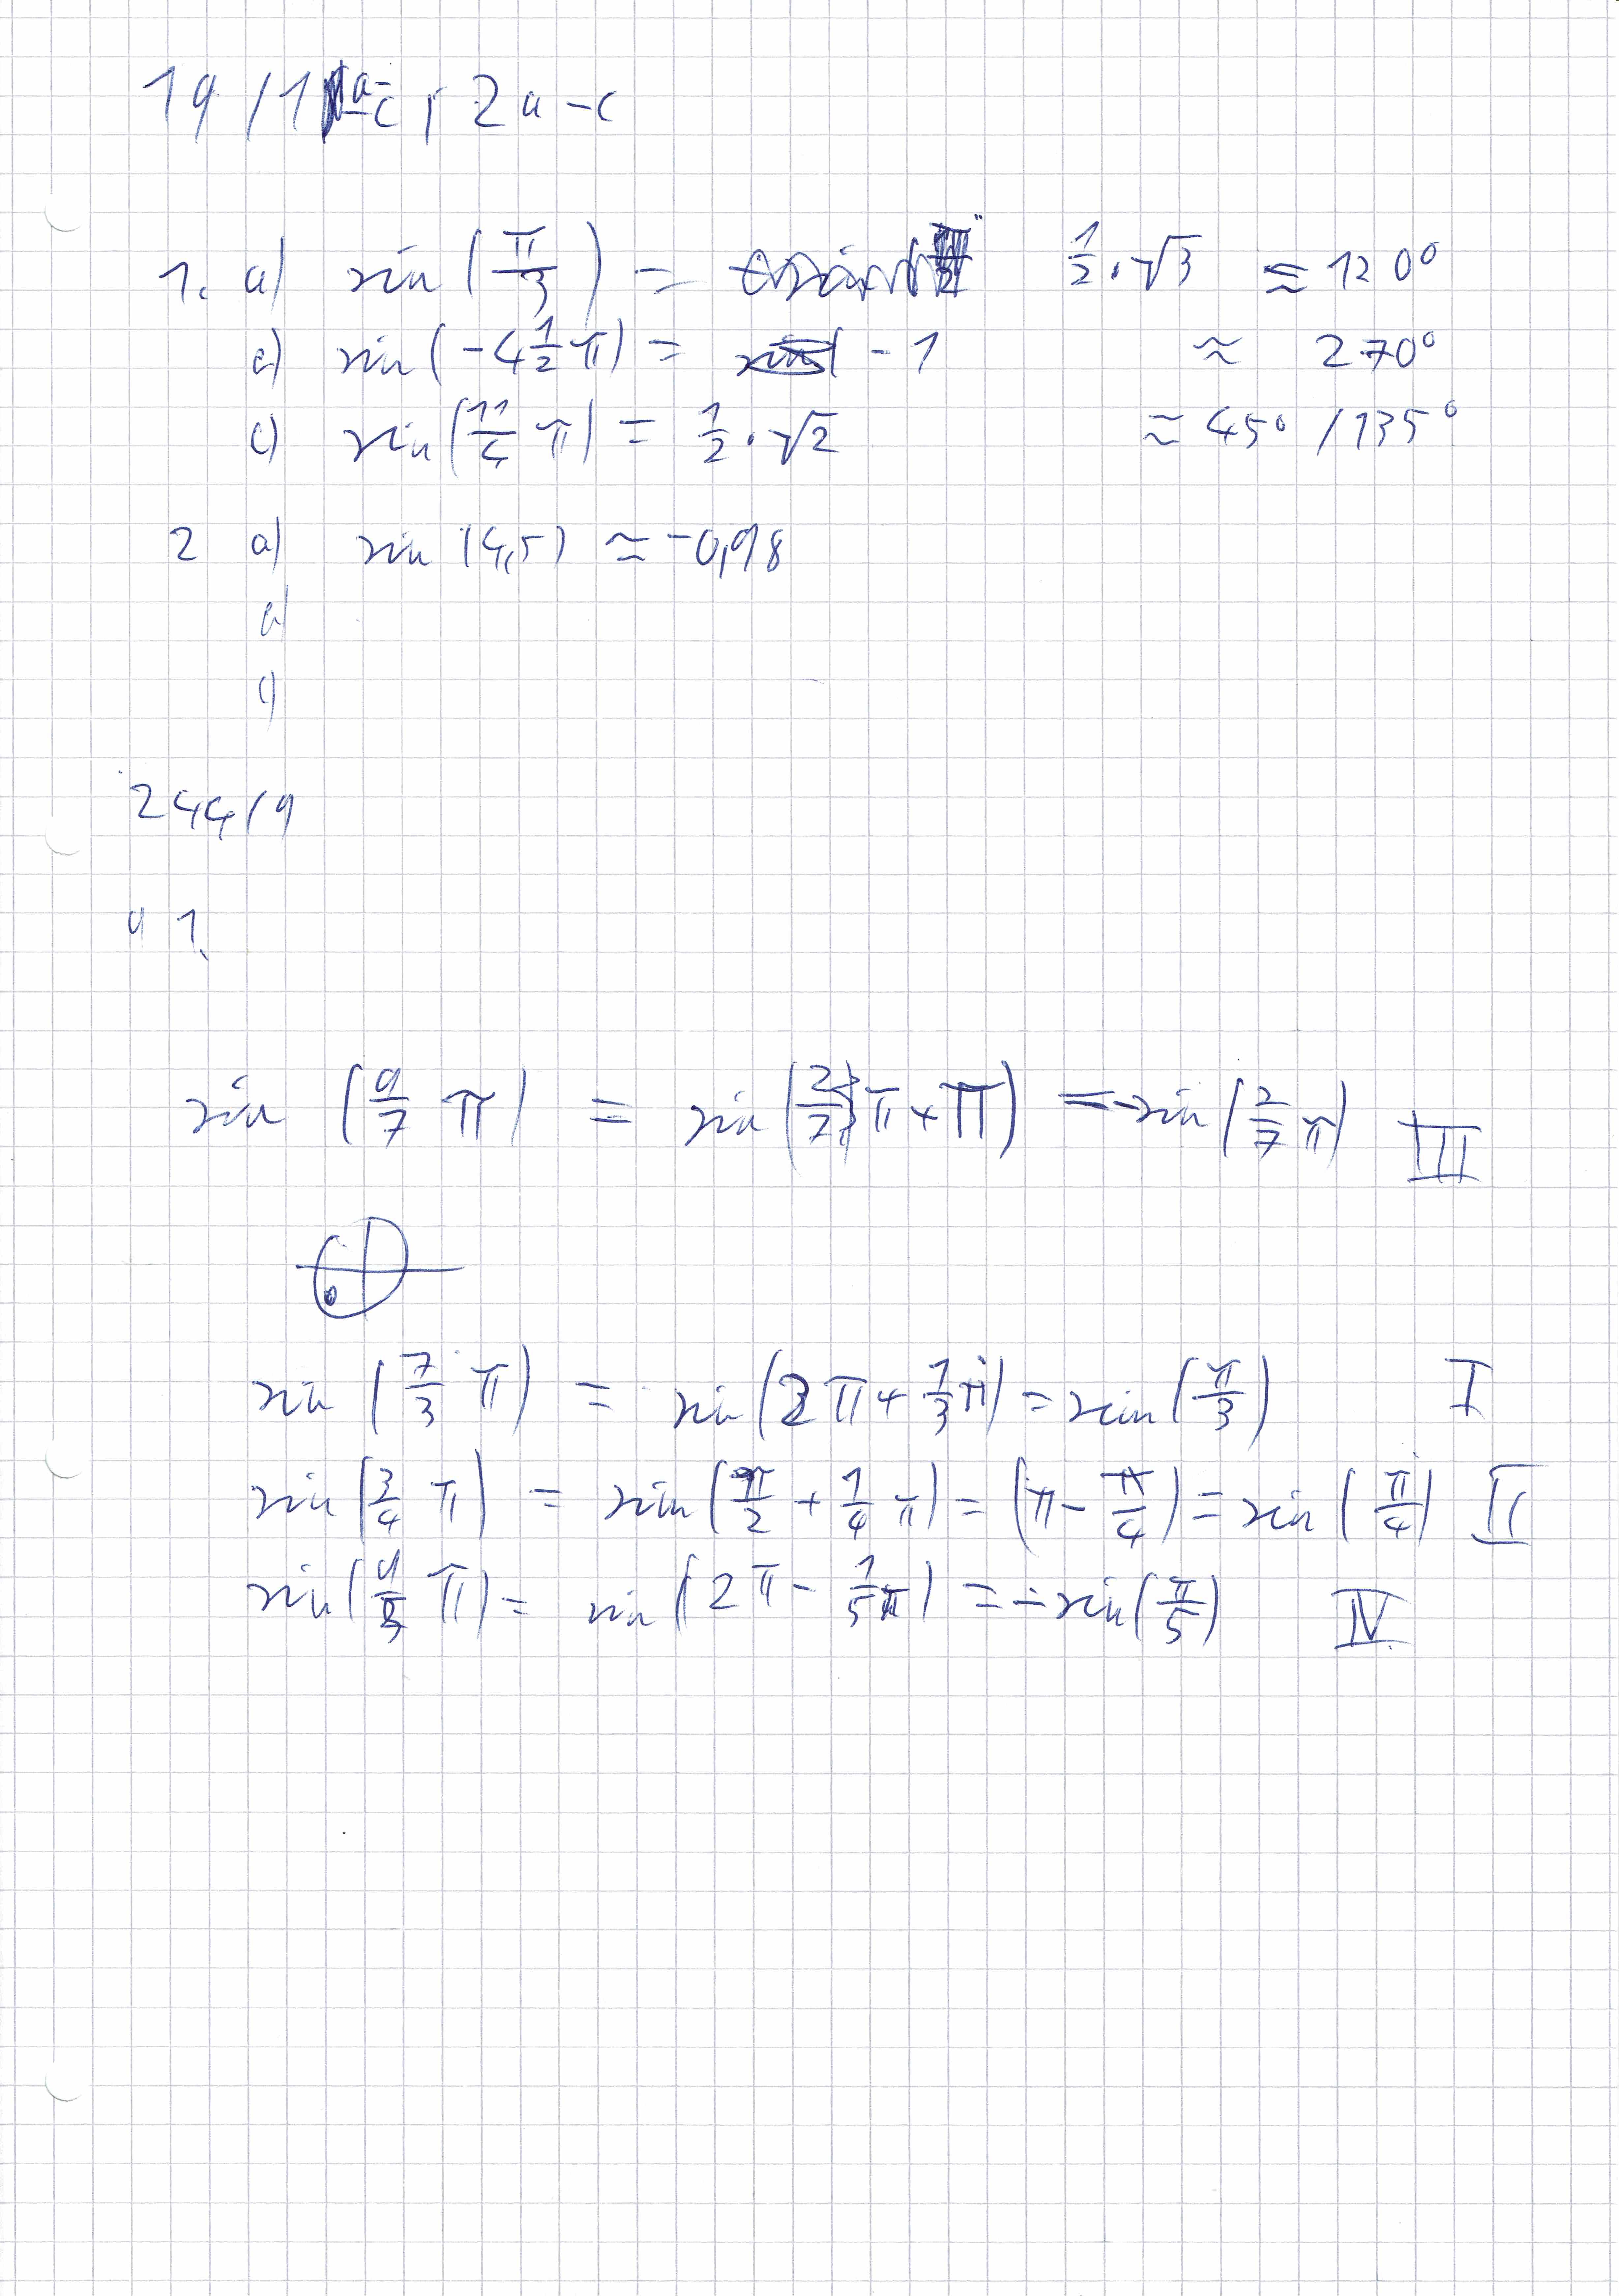 19 / 1 a-c, 2a-c
1. a) sin(π/3) = 1/2 · √3 ≈ 120°
e) sin(-4 1/2 π) = -1 ≈ 270°
c) sin(11/4 π) = 1/2 · √2 ≈ 45° / 135°
2 a) sin(4,5) ≈ -0,98
e)
c)
244/9
9 1.
sin(9/7 π) = sin(2/7 π + π) = -sin(2/7 π) III
sin(7/3 π) = sin(2π + 1/3 π) = sin(π/3) I
sin(3/4 π) = sin(π/2 + 1/4 π) = (π - π/4) = sin(π/4) II
sin(9/5 π) = sin(2π - 1/5 π) = -sin(π/5) IV